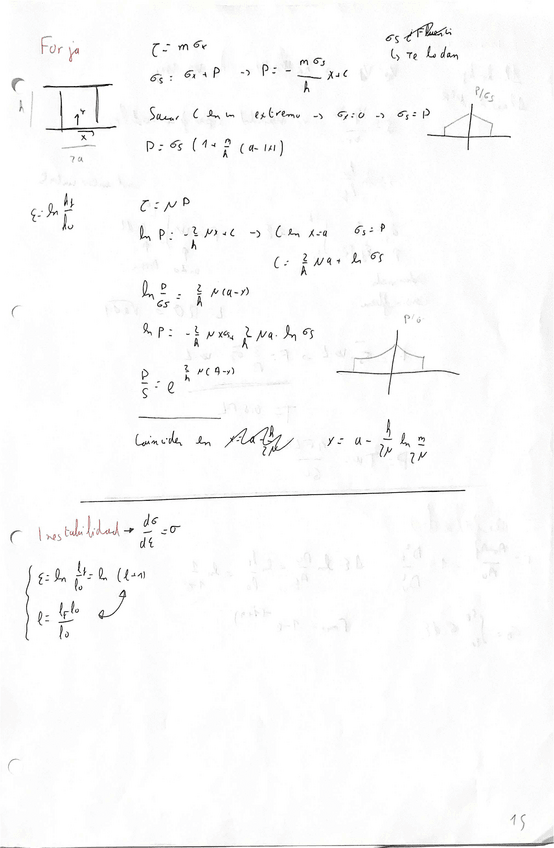 Forja
τ = m σx
σs = σx + P → P = - mσs/h x + C
Sacar C en un extremo → σx = 0 → σs = P
P = σs (1 + m/h (a - |x|))
σs
↳ Te lo dan
P/σs
h
x
2a
ε = ln hf/h0
τ = μ P
ln P = - 2/h μx + C → C en x=a σs = P
C = 2/h μa + ln σs
ln P/σs = 2/h μ(a-x)
ln P = - 2/h μx + 2/h μa · ln σs
P/S = e^(2/h μ(a-x))
P/σ
Coinciden en x = a - h/2μ ln m/2μ
Inestabilidad → dσ/dε = σ
ε = ln lf/l0 = ln (l+1)
l = lf-l0/l0
15